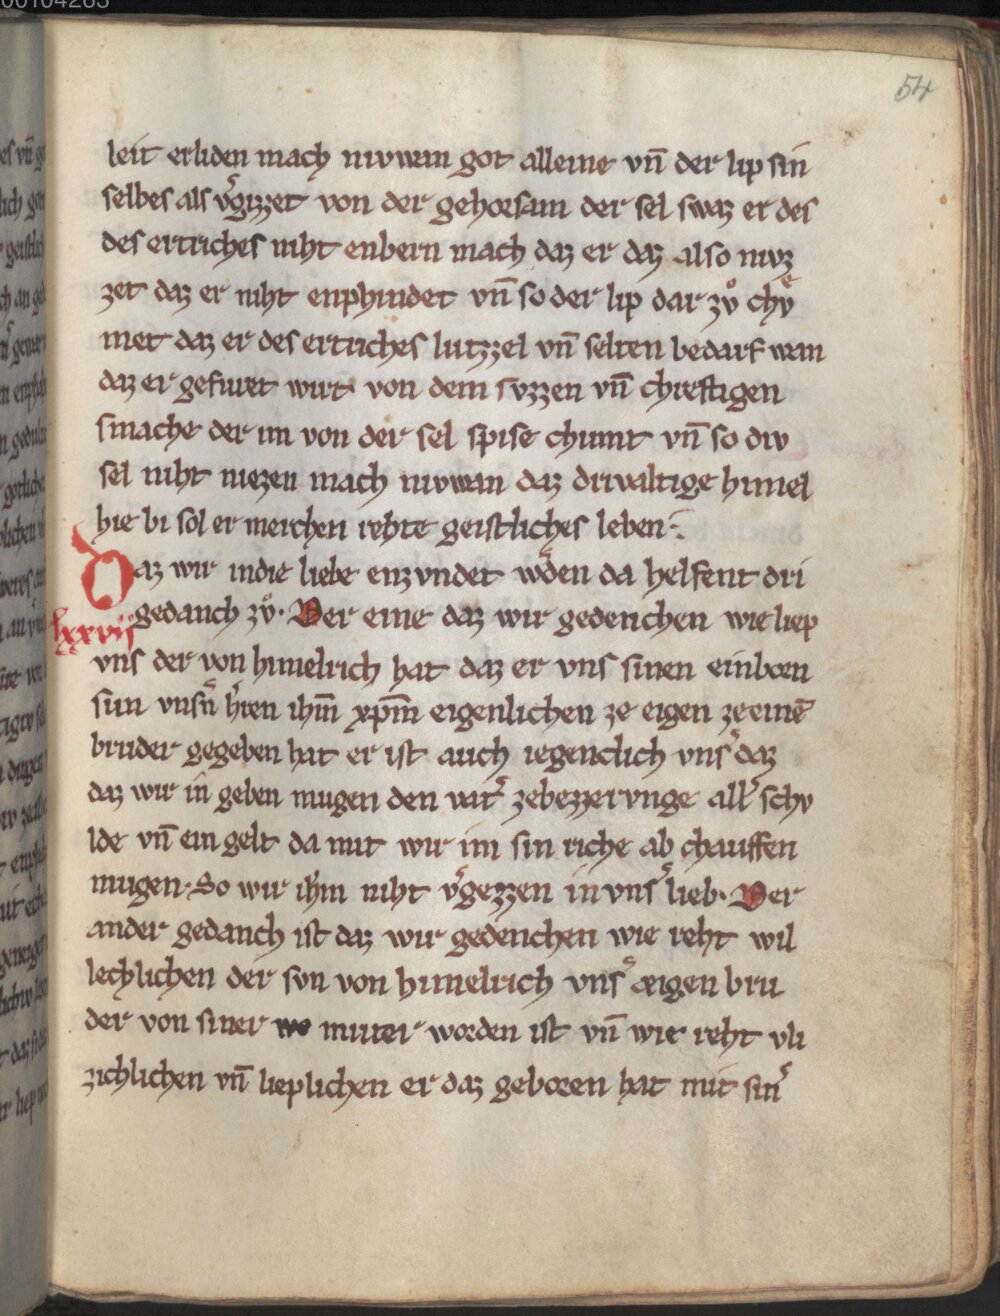 00104263
54
leit erliden mach niwan got alleine vn̄ der lip sin
selbes als v͛gizzet von der gehorsam der sel swaz er des
des ertriches niht enbern mach daz er daz also nivz
zet daz er niht enphindet vn̄ so der lip dar zvͦ chvͤ
met daz er des ertriches lutzzel vn̄ selten bedarf wan
daz er gefuret wirt von dem svzzen vn̄ chreftigen
smache der im von der sel spise chumt vn̄ so div
sel niht niezen mach niwan daz drivaltige himel
hie bi sol er merchen rehte geistliches leben
Daz wir indie liebe enzvndet w͛den da helfent dri
gedanch zvͦ. Der eine daz wir gedenchen wie liep
lxxvij
vns der von himelrich hat daz er vns sinen einborn
sun vns͛n h͛ren ihm̄ xpm̄ eigenlichen ze eigen ze einē
bruder gegeben hat er ist auch iegenclich vns͛ daz
daz wir in geben mugen den vat͛ zebezzervnge all͛ schv
lde vn̄ ein gelt da mit wir im sin riche ab chauffen
mugen. So wir ih͛m niht v͛gezzen in vns͛ lieb. Der
ander gedanch ist daz wir gedenchen wie reht wil
lechlichen der svn von himelrich vns͛ æigen bru
der von siner muter worden ist vn̄ wie reht vli
zichlichen vn̄ lieplichen er daz geboren hat mit sin͛